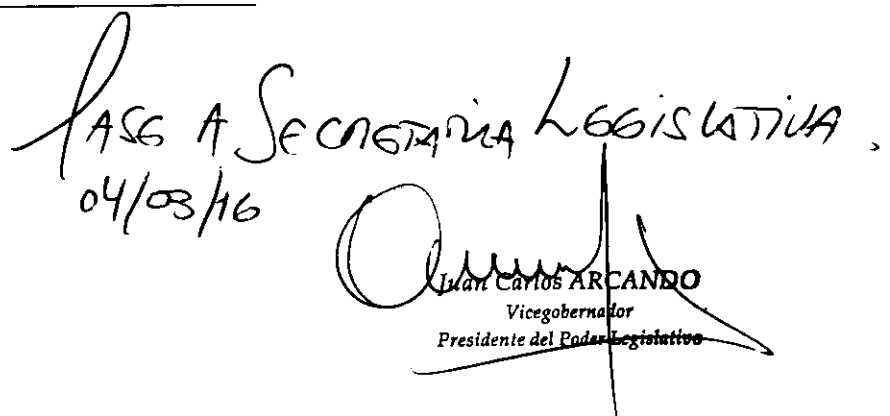 PASE A SECRETARIA LEGISLATIVA.
04/03/16
Juan Carlos ARCANDO
Vicegobernador
Presidente del Poder Legislativo